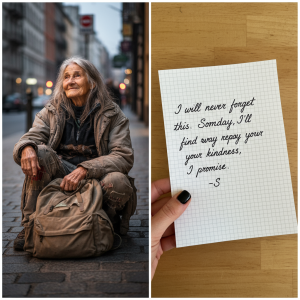 I will never forget
this. Somday, I'll
find way repay your
your kindness,
I promise.
-S